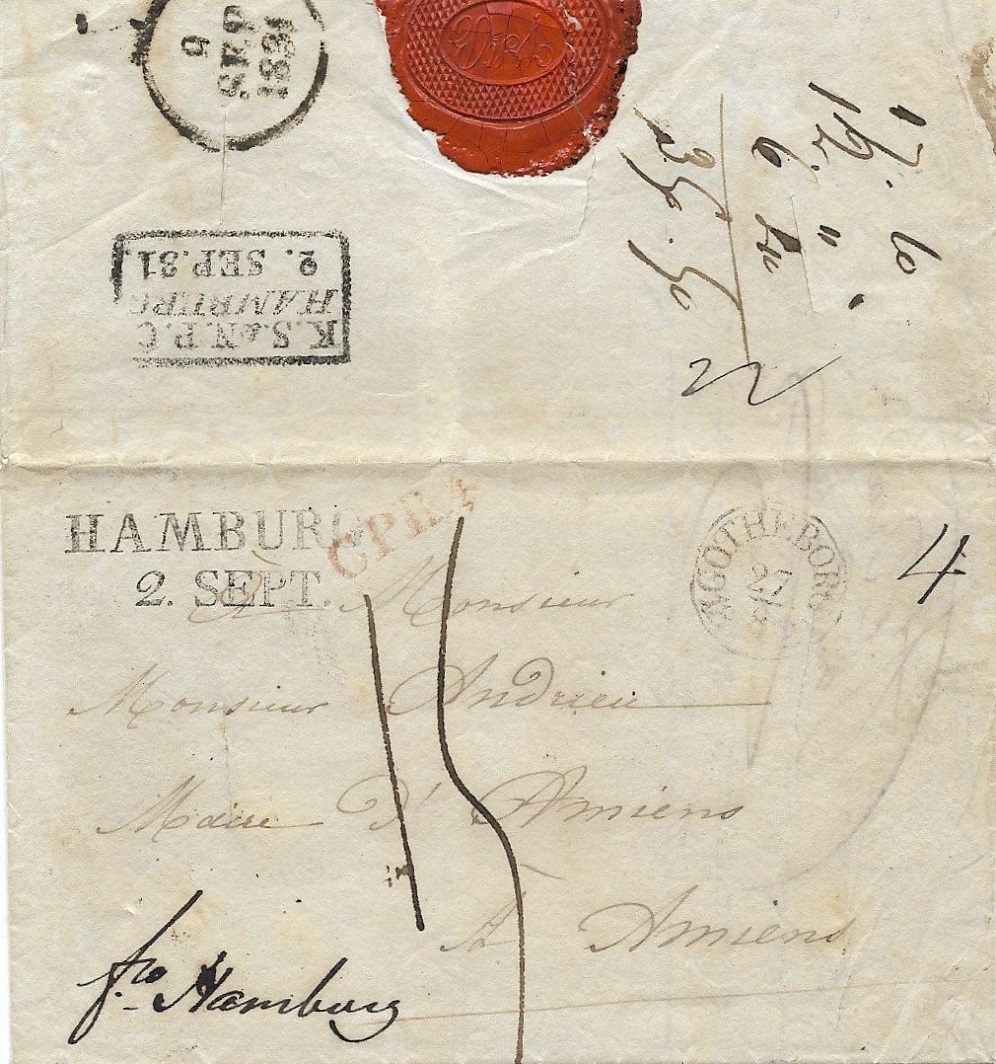 9
SEP
1831
K.S.&N.P.C
HAMBURG
2. SEP. 31
17. 6
6
22
HAMBURG
2. SEPT.
CPR4
GOTHEBORG
27
4
A Monsieur
Monsieur Andrieu
Maire d'Amiens
15
A Amiens
fro Hamburg